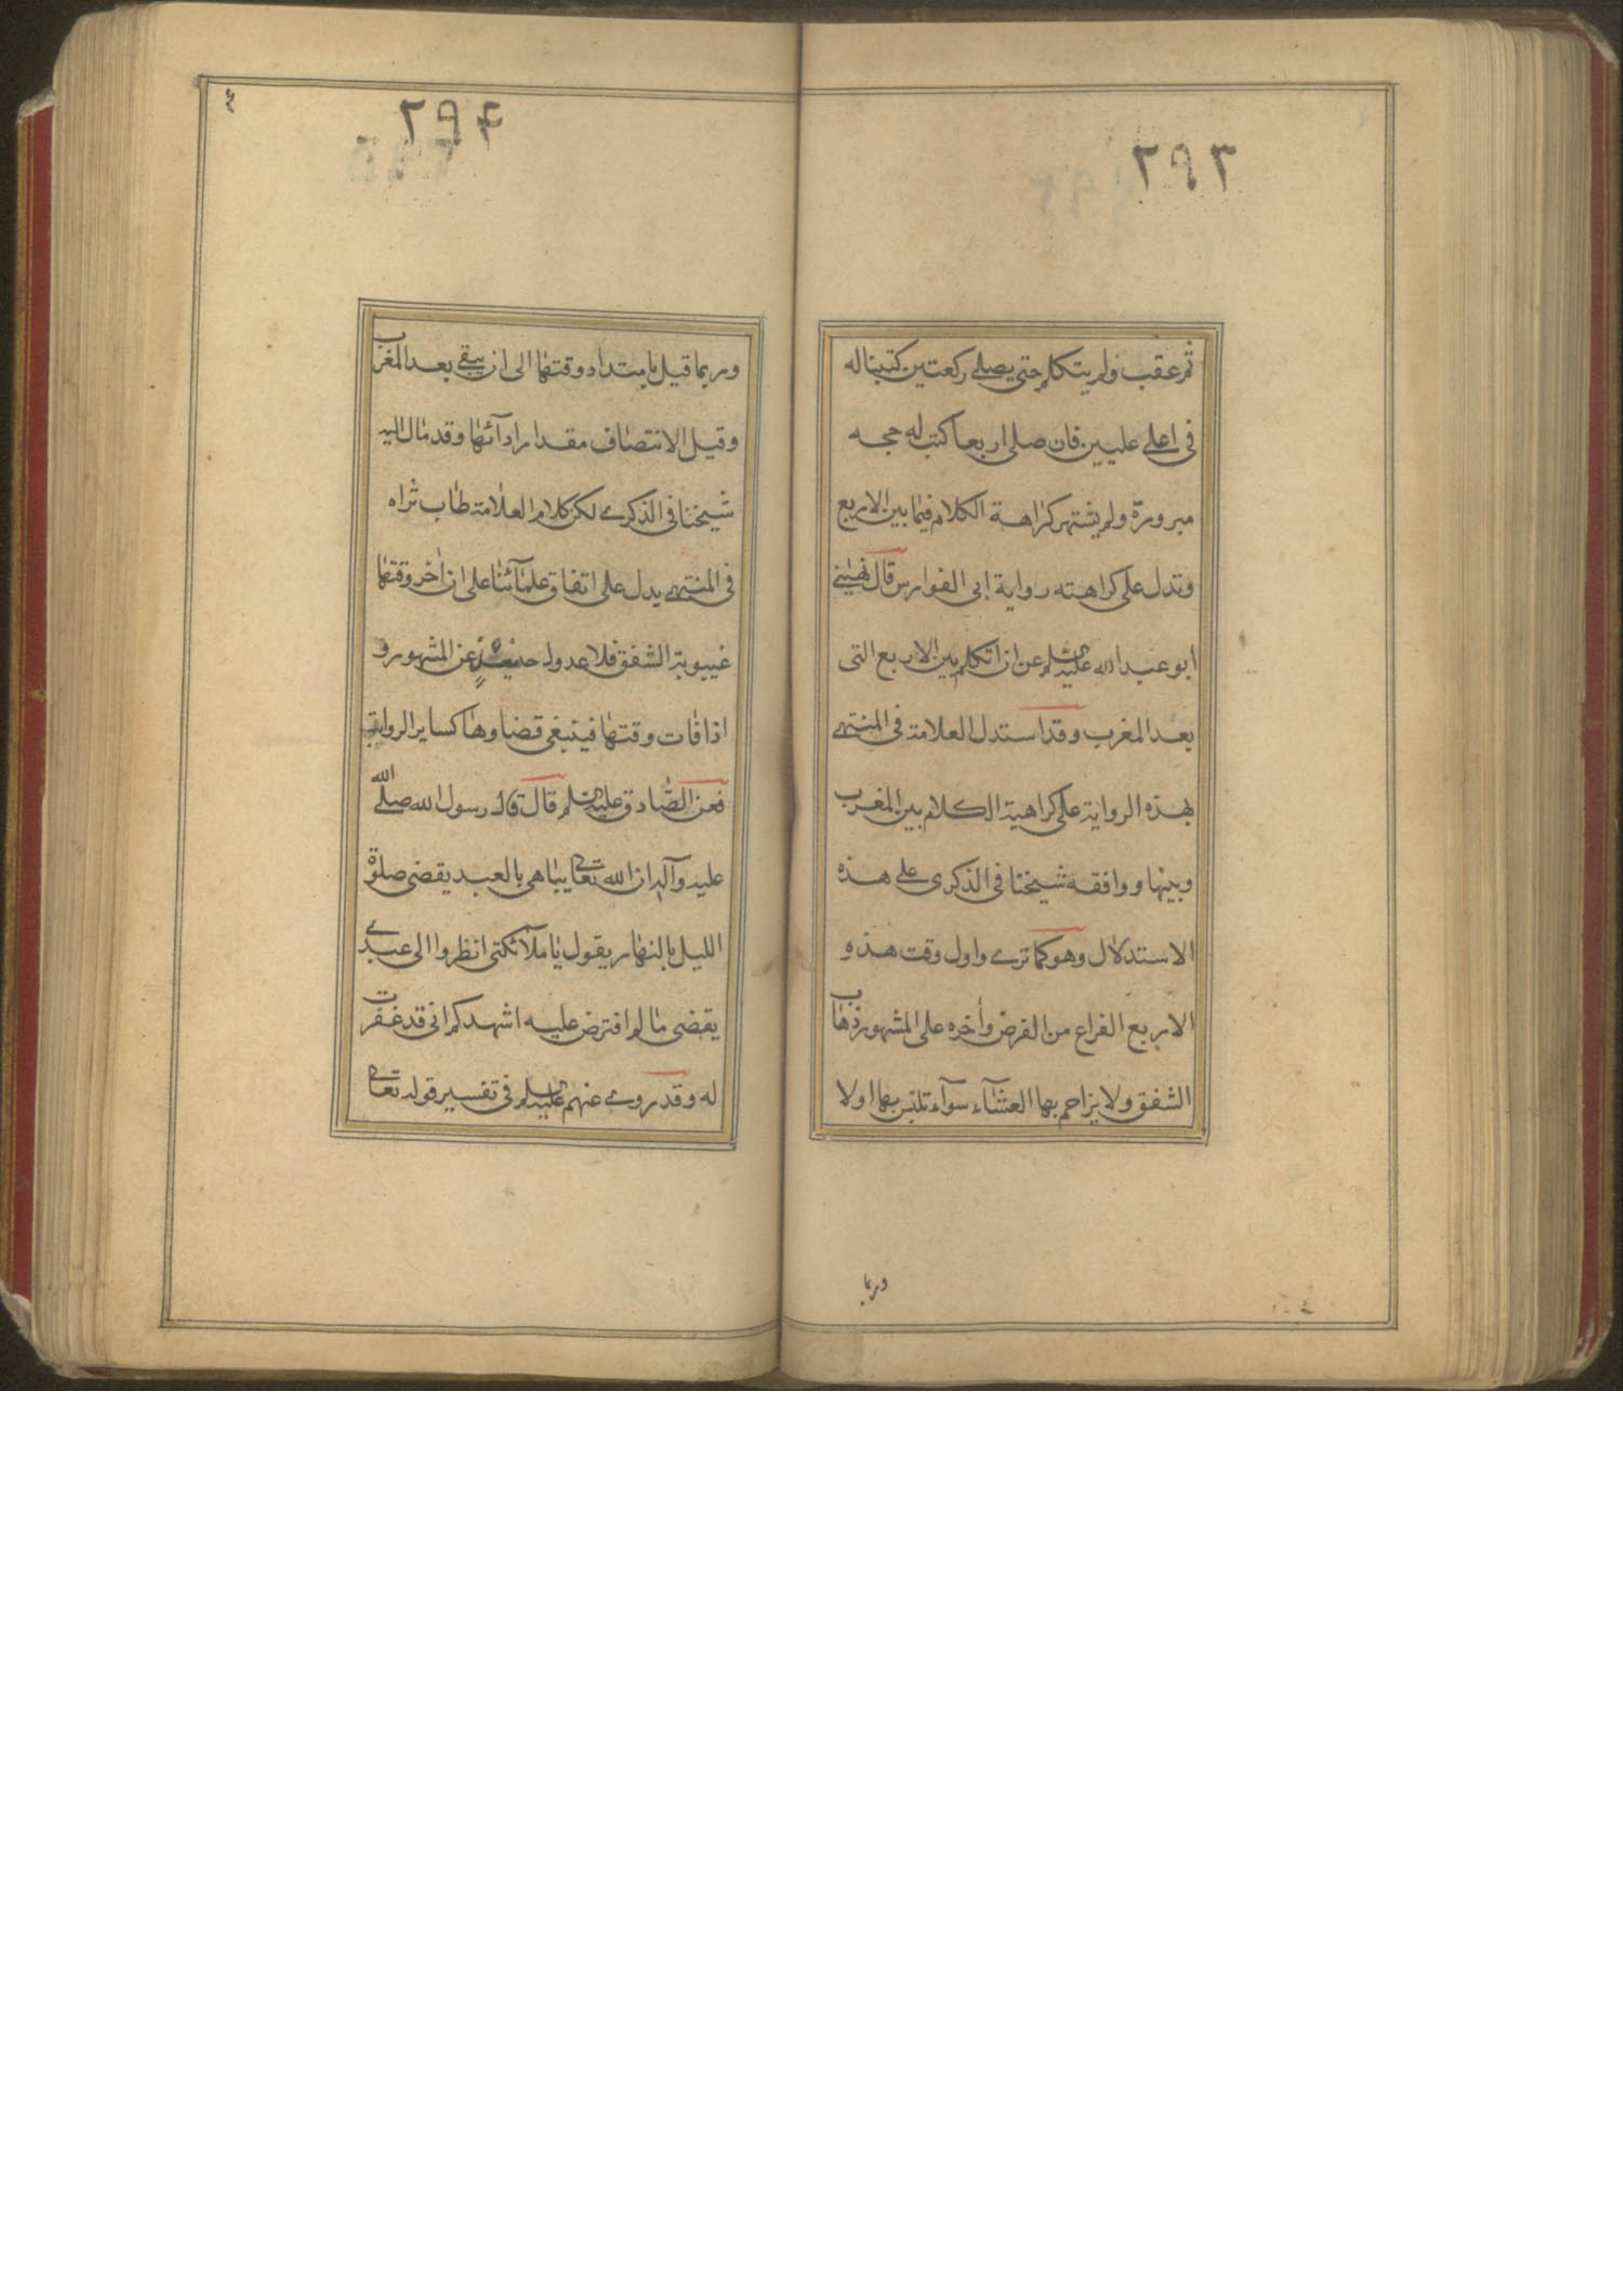 ٢٩٣
ثم عقب ولم يتكلم حتى يصلى ركعتين كتبنا له
فى اعلى عليين فان صلى اربعا كتب له حجه
مبرورة ولم يشتهر كراهة الكلام فيما بين الاربع
وتدل على كراهته رواية ابى الفوارس قال نهينى
ابو عبد الله عليه السلم عن ان اتكلم بين الاربع التى
بعد المغرب وقد استدل العلامة فى المنتهى
بهذه الرواية على كراهية الكلام بين المغرب
وبينها ووافقه شيخنا فى الذكرى على هذه
الاستدلال وهو كما ترى واول وقت هذه
الاربع الفراع من الفرض وآخره على المشهور ذهاب
الشفق ولا يزاحم بها العشآء سوآء تلبس بها اولا
وربما
٢٩۴
وربما قيل بامتداد وقتها الى ان يبقى بعد المغرب
وقيل الانتصاف مقدار ادآئها وقد مال اليه
شيخنا فى الذكرى لكن كلام العلامة طاب ثراه
فى المنتهى يدل على اتفاق علمآئنا على ان آخر وقتها
غيبوبة الشفق فلا عدول حينئذ عن المشهور و
اذا فات وقتها فينبغى قضاوها كساير الرواتب
فعن الصادق عليه السلم قال قال رسول الله صلى الله
عليه وآله ان الله تعالى يباهى بالعبد يقضى صلوة
الليل بالنهار يقول يا ملآئكتى انظروا الى عبدى
يقضى ما لم افترض عليه اشهدكم انى قد غفرت
له وقد روى عنهم عليه السلم فى تفسير قوله تعالى